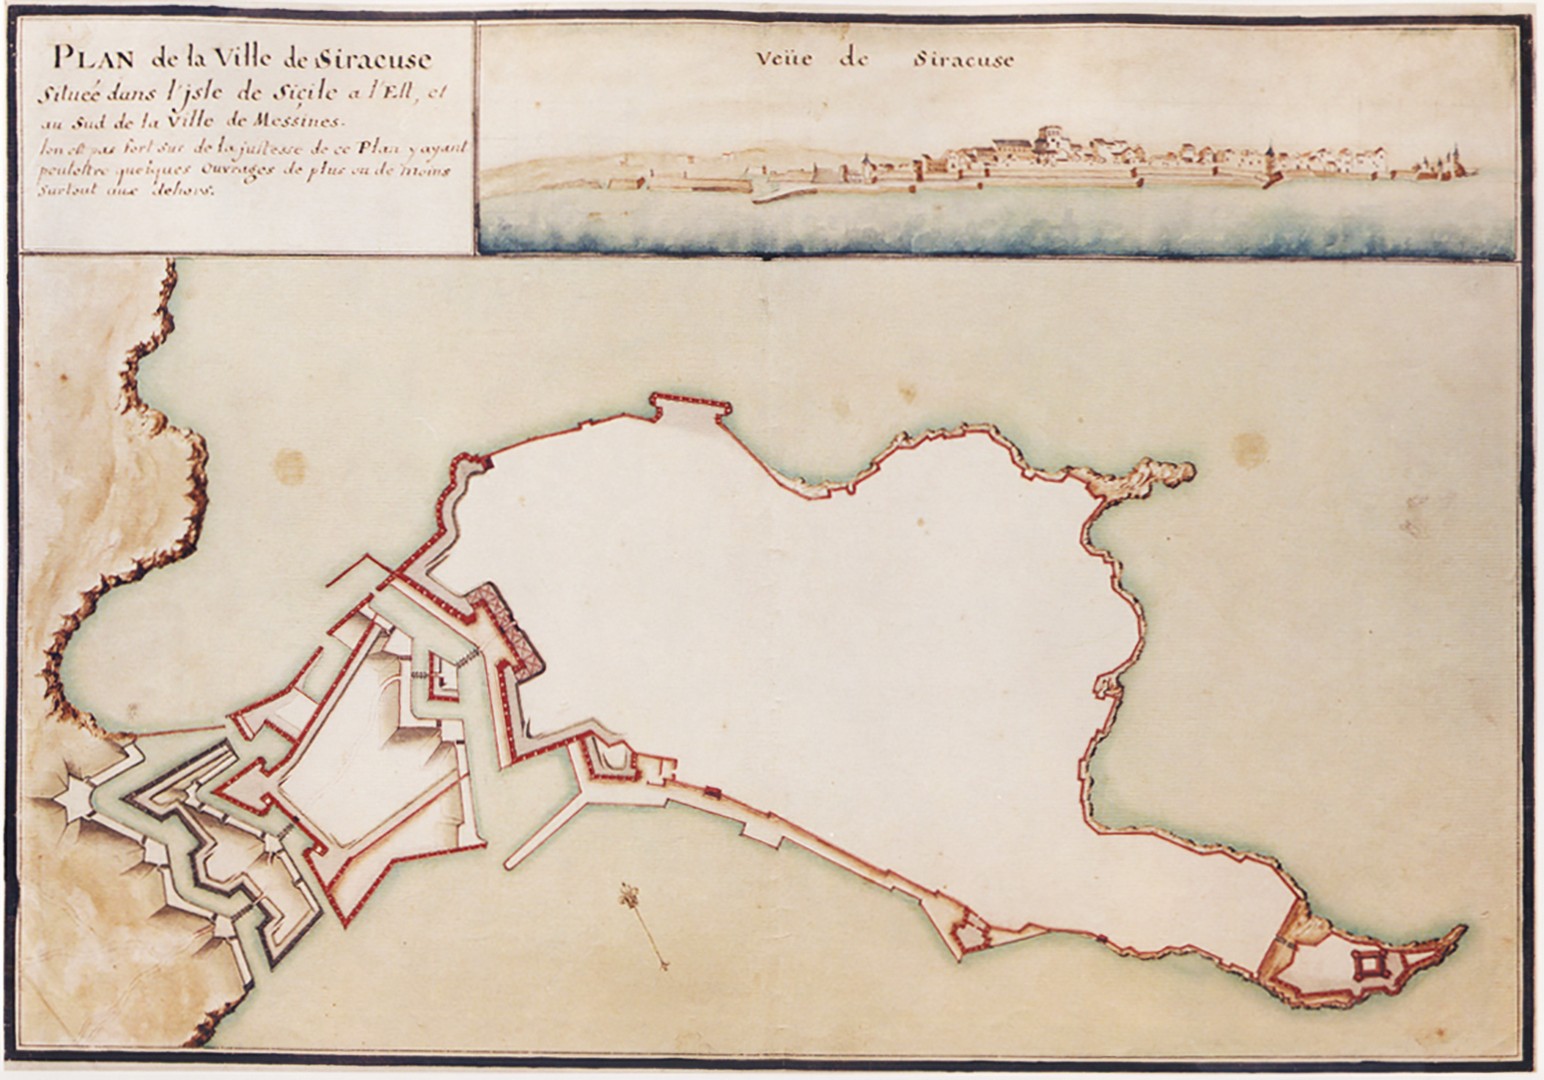 PLAN de la Ville de Siracuse
Situeé dans l'jsle de Siçile a l'Est, et
au Sud de la Ville de Messines.
lon est pas fort sur de la justesse de ce Plan y ayant
peutestre quelques ouvrages de plus ou de moins
surtout aux dehors.
Veüe de Siracuse